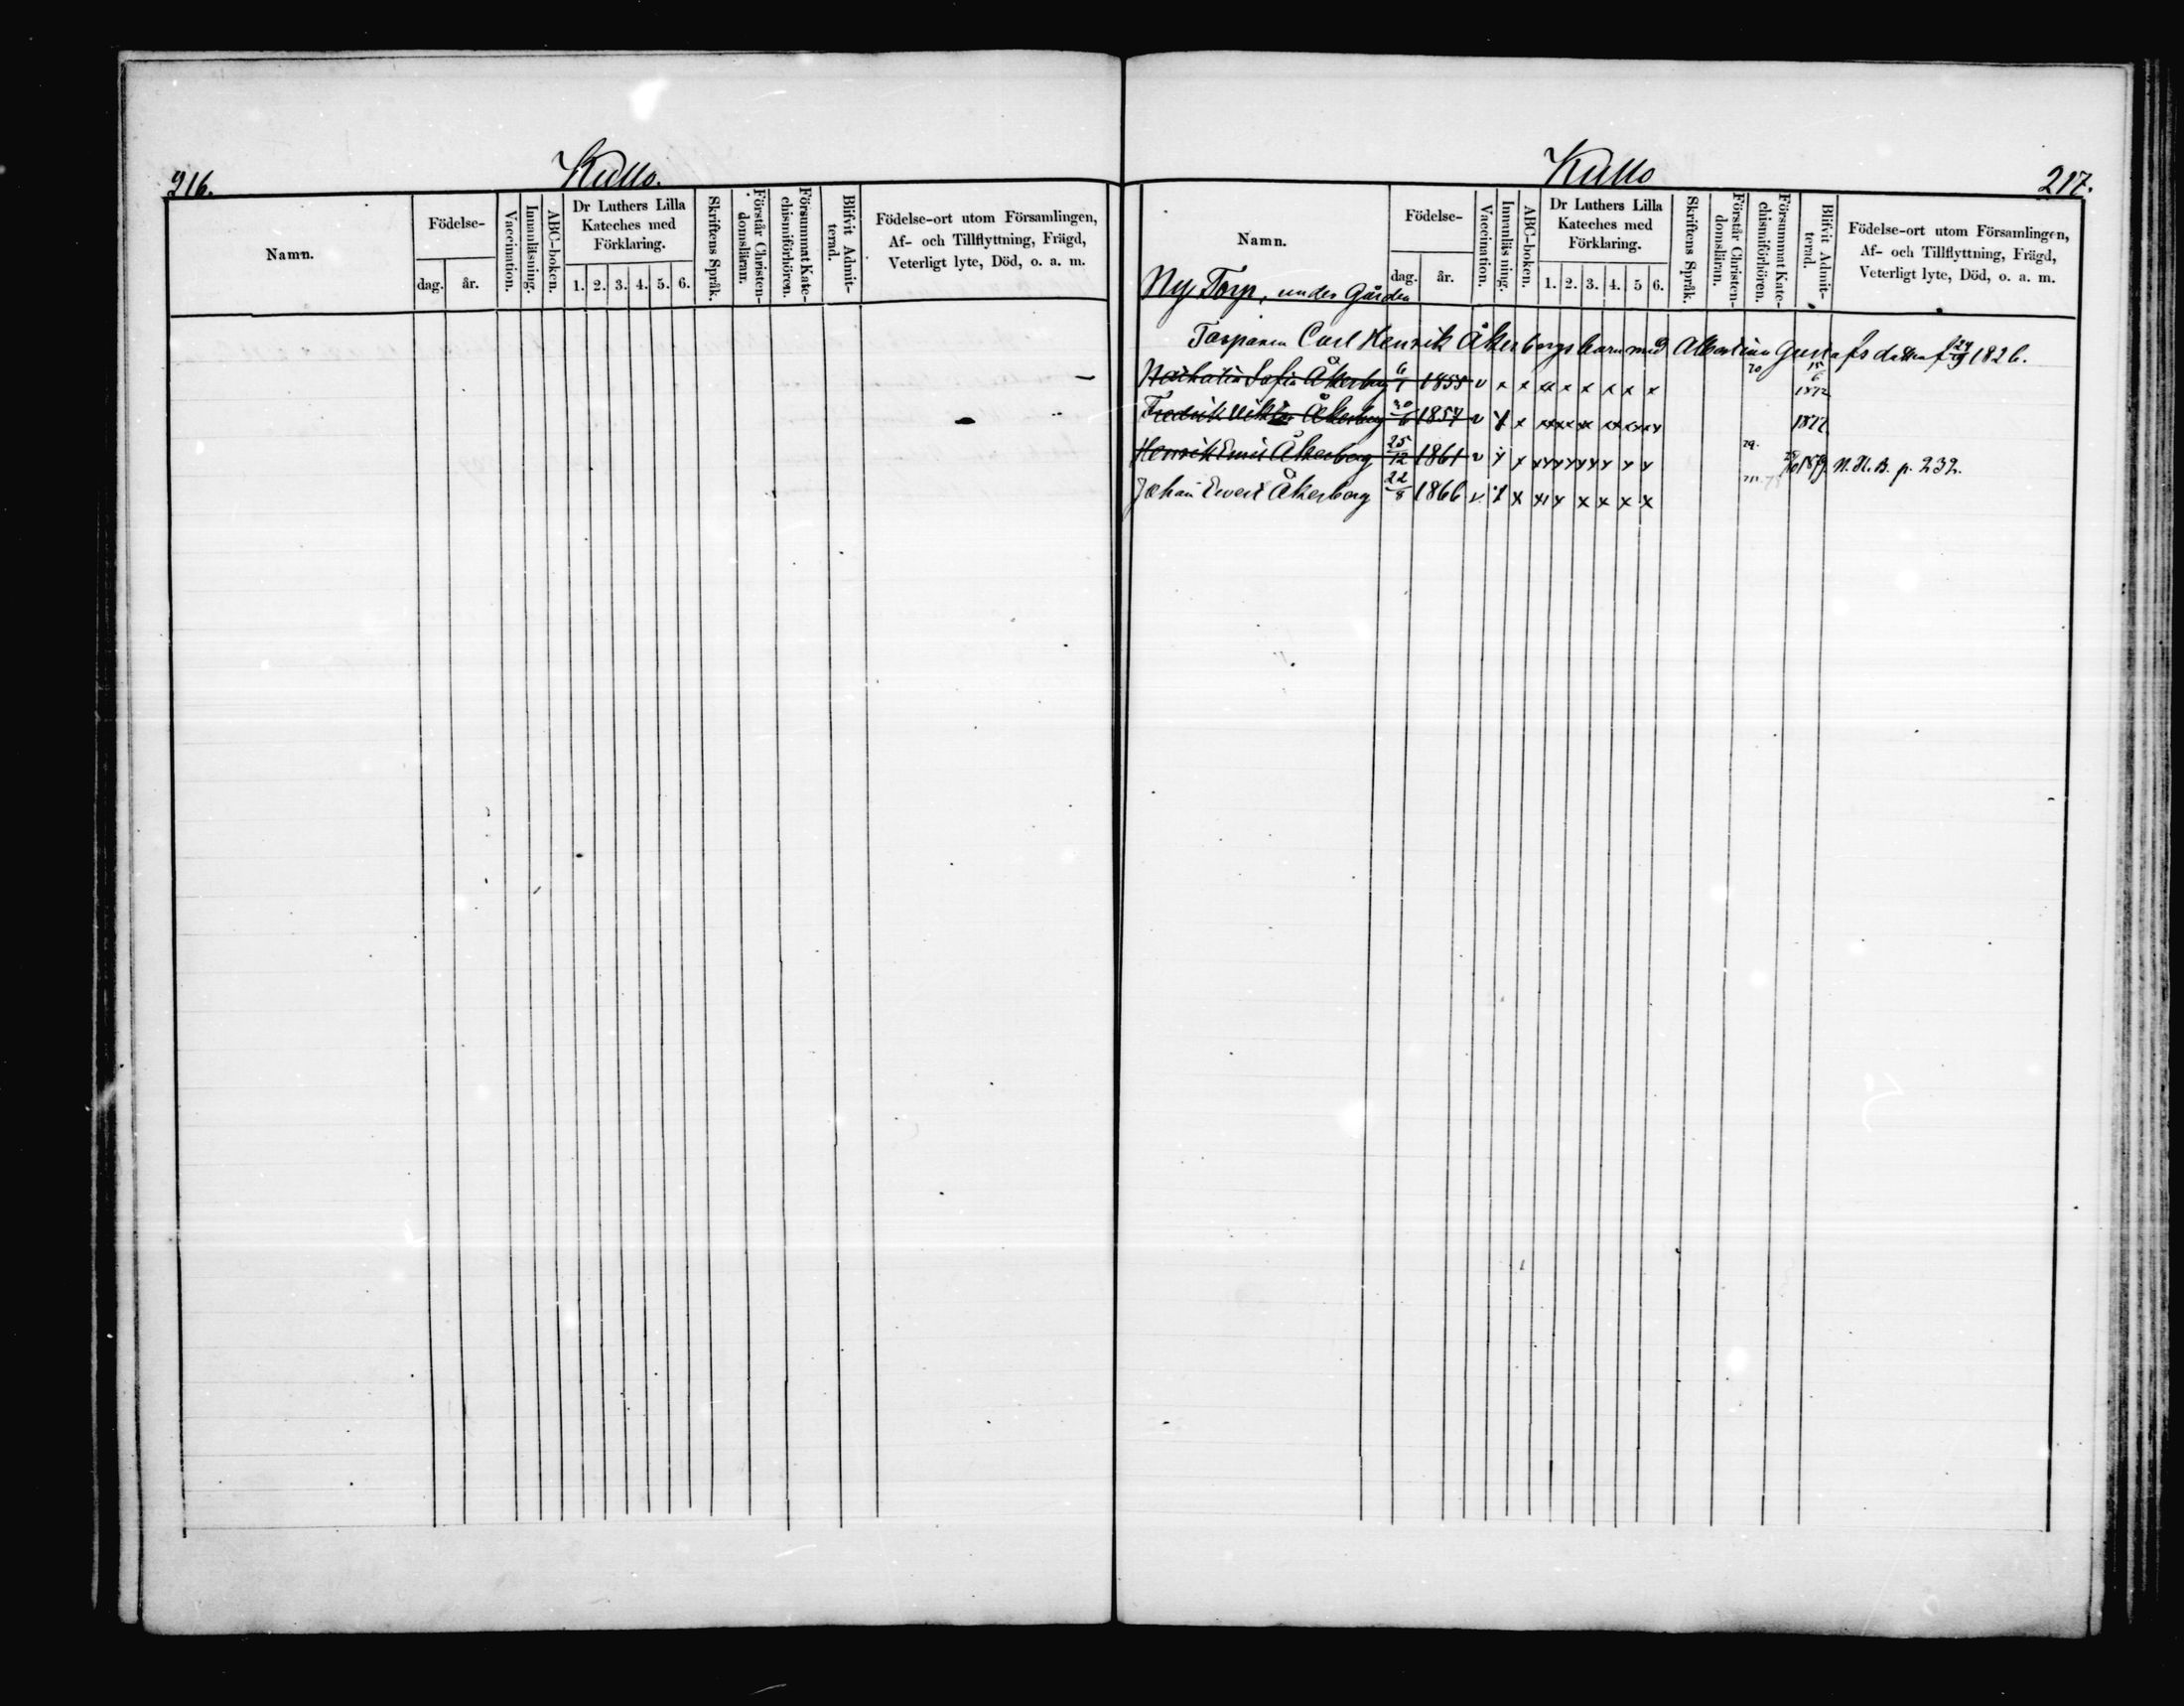 216.
Kullo.
Namn.
Födelse-
dag. år.
Vaccination.
Innanläsning.
ABC-boken.
Dr Luthers Lilla
Kateches med
Förklaring.
1. 2. 3. 4. 5. 6.
Skriftens Språk.
Förstår Christen-
domsläran.
Försummat Kate-
chismiförhören.
Blifvit Admit-
terad.
Födelse-ort utom Församlingen,
Af- och Tillflyttning, Frägd,
Veterligt lyte, Död, o. a. m.
Kullo
217.
Namn.
Födelse-
dag. år.
Vaccination.
Innanläsning.
ABC-boken.
Dr Luthers Lilla
Kateches med
Förklaring.
1. 2. 3. 4. 5 6.
Skriftens Språk.
Förstår Christen-
domsläran.
Försummat Kate-
chismiförhören.
Blifvit Admit-
terad.
Födelse-ort utom Församlingen,
Af- och Tillflyttning, Frägd,
Veterligt lyte, Död, o. a. m.
Ny Torp, under Gården
Torparen Carl Henrik Åkerbergs barn med Albertina Gustafsdotter f. 24/9 1826.
Sofia Åkerberg 6/1 1855 v x x xx x x x x x 15/6 1872
Fredrik Viktor Åkerberg 30/6 1857 v
Henrik Emil Åkerberg 25/12 1861 v 1879. N. H. B. p. 232.
Johan Evert Åkerberg 22/8 1866 v